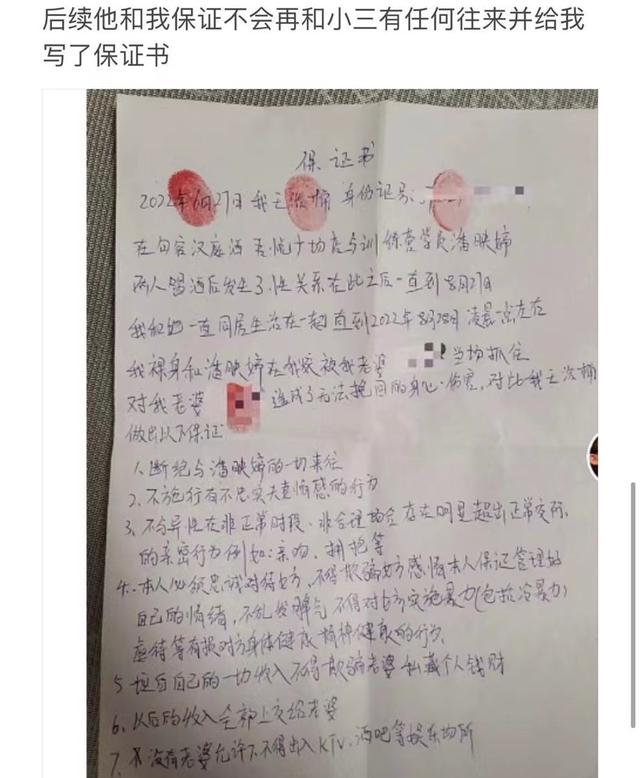 后续他和我保证不会再和小三有任何往来并给我
写了保证书
保证书
2022年6月27日 我王 身份证号:
在句容汉庭酒 与训练营学员潘映婷
两人喝酒后发生了性关系在此之后一直到8月27日
我和她一直同居生活在一起直到2022年8月28日凌晨一点左右
我裸身和潘映婷在 被我老婆 当场抓住
对我老婆 造成了无法挽回的身心伤害,对此我王
做出以下保证
1.断绝与潘映婷的一切来往
2.不施行有不忠实夫妻情感的行为
3.不与异性在非正常时段、非合理场合存在明显超出正常交际
的亲密行为例如:亲吻,拥抱等
4.本人必须忠诚对待对方,不得欺骗对方感情本人保证管理好
自己的情绪,不乱发脾气 不得对对方实施暴力(包括冷暴力)
虐待等有损对方身体健康 精神健康的行为
5 坦白自己的一切收入不得欺骗老婆 私藏个人钱财
6.以后的收入全部上交给老婆
7. 没有老婆允许不得出入KTV、酒吧等娱乐场所